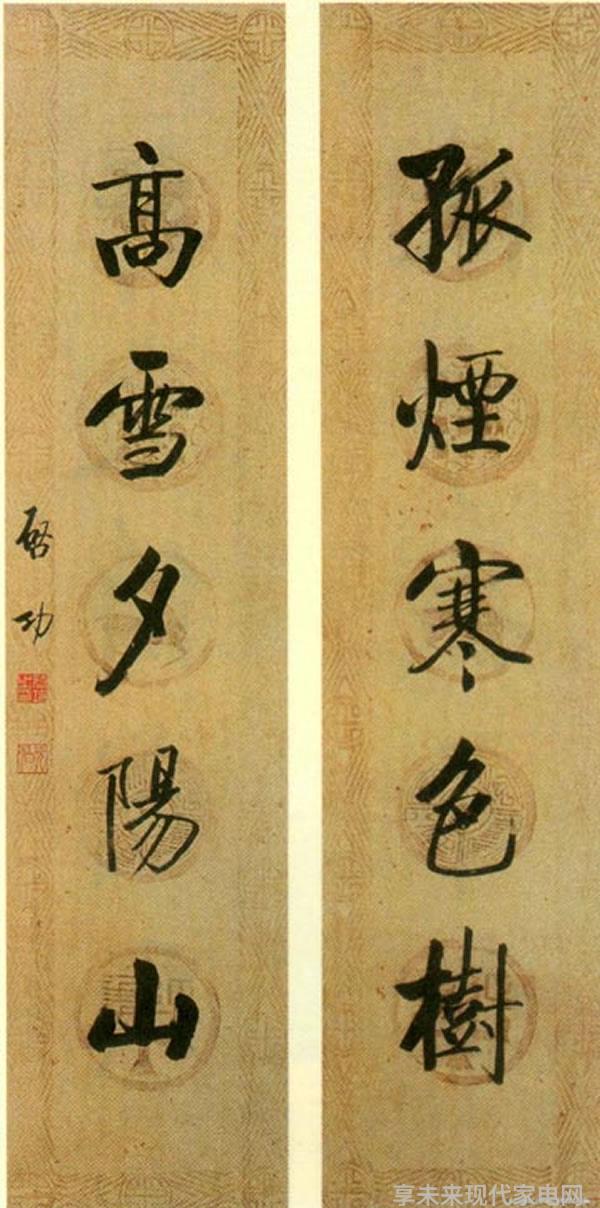 孤煙寒色樹
高雪夕陽山
啓功
享未来现代家电网